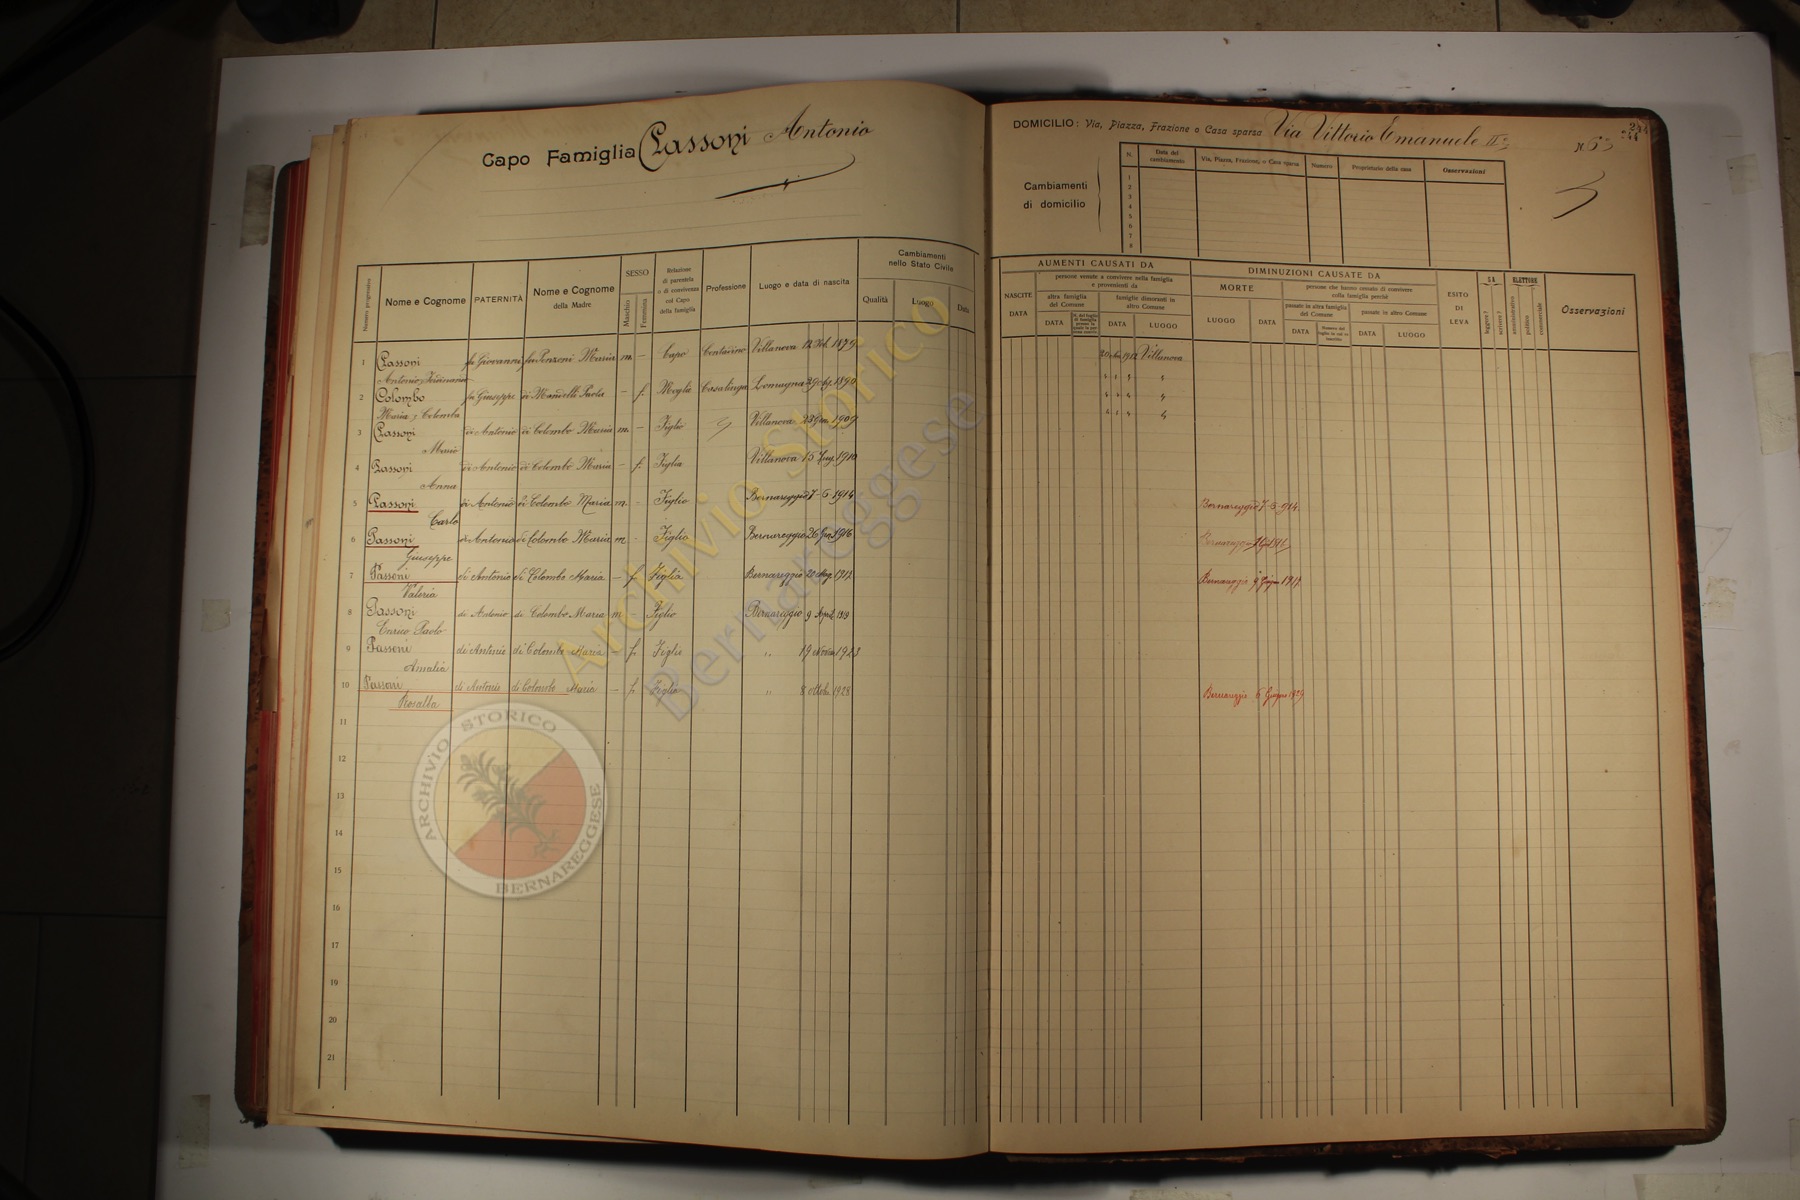 Capo Famiglia Passoni Antonio
Numero progressivo
Nome e Cognome
PATERNITÀ
Nome e Cognome
della Madre
SESSO
Maschio
Femmina
Relazione
di parentela
o di convivenza
col Capo
della famiglia
Professione
Luogo e data di nascita
Cambiamenti
nello Stato Civile
Qualità
Luogo
Data
1 Passoni fu Giovanni fu Ponzoni Maria m. – Capo Villanova 1879
Antonio Ferdinando
2 Colombo fu Giuseppe di Mandelli Paola – f. Moglie Casalinga Lomagna 1890
Maria Colomba
3 Passoni di Antonio di Colombo Maria m. – Figlio Villanova 23 Gen. 1909
Mario
4 Passoni di Antonio di Colombo Maria – f. Figlia Villanova 15 1910
Anna
5 Passoni di Antonio di Colombo Maria m. - Figlio Bernareggio 7-6-1914
Carlo
6 Passoni di Antonio di Colombo Maria m. - Figlio Bernareggio 26 1916
Giuseppe
7 Passoni di Antonio di Colombo Maria – f Figlia Bernareggio 20 1917
Valeria
8 Passoni di Antonio di Colombo Maria m - Figlio Bernareggio 9 Aprile 1919
Enrico Paolo
9 Passoni di Antonio di Colombo Maria – f. Figlio " 19 1923
Amalia
10 Passoni di Antonio di Colombo Maria – f. Figlia " 8 ottob. 1928
Rosalba
11
12
13
14
15
16
17
18
19
20
21
DOMICILIO: Via, Piazza, Frazione o Casa sparsa Via Vittorio Emanuele II°
244
244
Cambiamenti
di domicilio
N.
Data del
cambiamento
Via, Piazza, Frazione, o Casa sparsa
Numero
Proprietario della casa
Osservazioni
1
2
3
4
5
6
7
8
AUMENTI CAUSATI DA
NASCITE
DATA
persone venute a convivere nella famiglia
e provenienti da
altra famiglia
del Comune
DATA
famiglie dimoranti in
altro Comune
DATA
LUOGO
DIMINUZIONI CAUSATE DA
MORTE
LUOGO
DATA
persone che hanno cessato di convivere
colla famiglia perchè
passate in altra famiglia
del Comune
DATA
passate in altro Comune
DATA
LUOGO
ESITO
DI
LEVA
SA
leggere?
scrivere?
ELETTORE
amministrativo
politico
commerciale
Osservazioni
Villanova
Bernareggio 7-6-914
Bernareggio
Bernareggio 9 Giugno 1917
Bernareggio 6 Giugno 1929
Archivio Storico
Bernareggese
ARCHIVIO STORICO
BERNAREGGESE